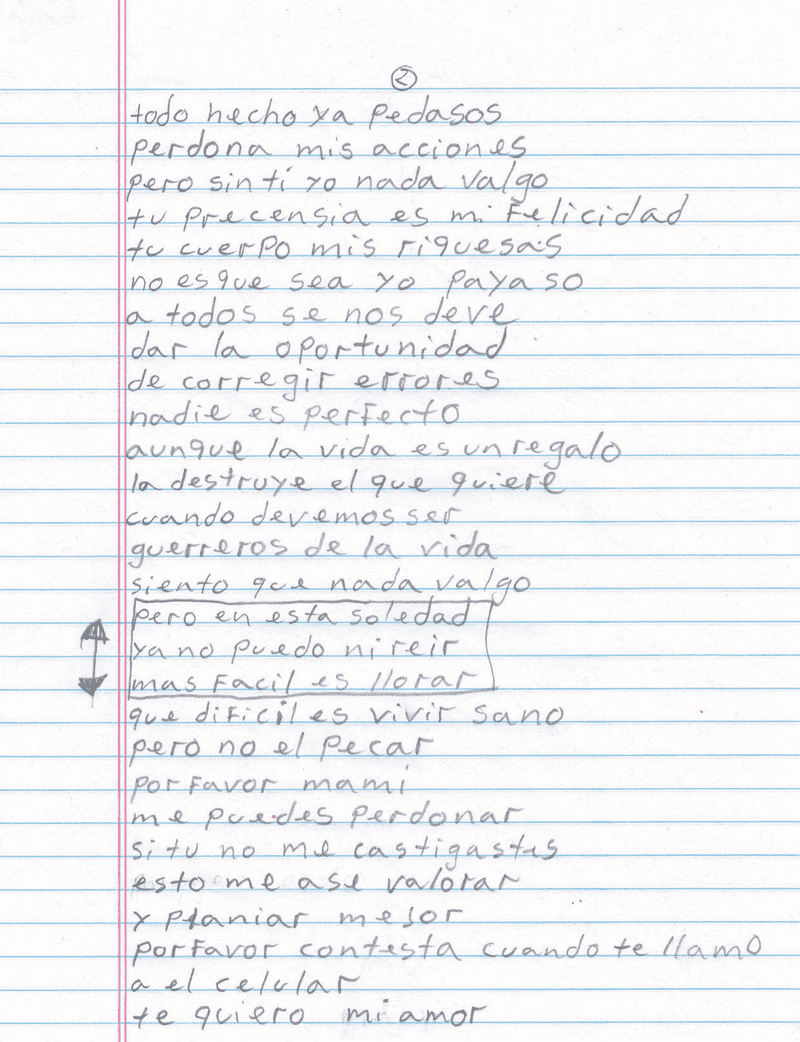 2
todo hecho ya pedasos
perdona mis acciones
pero sin tí yo nada valgo
tu precensia es mi felicidad
tu cuerpo mis riquesas
no es que sea yo payaso
a todos se nos deve
dar la oportunidad
de corregir errores
nadie es perfecto
aunque la vida es un regalo
la destruye el que quiere
cuando devemos ser
guerreros de la vida
siento que nada valgo
pero en esta soledad
ya no puedo ni reir
mas facil es llorar
que dificil es vivir sano
pero no el pecar
por favor mami
me puedes perdonar
si tu no me castigastes
esto me ase valorar
y planiar mejor
por favor contesta cuando te llamo
a el celular
te quiero mi amor